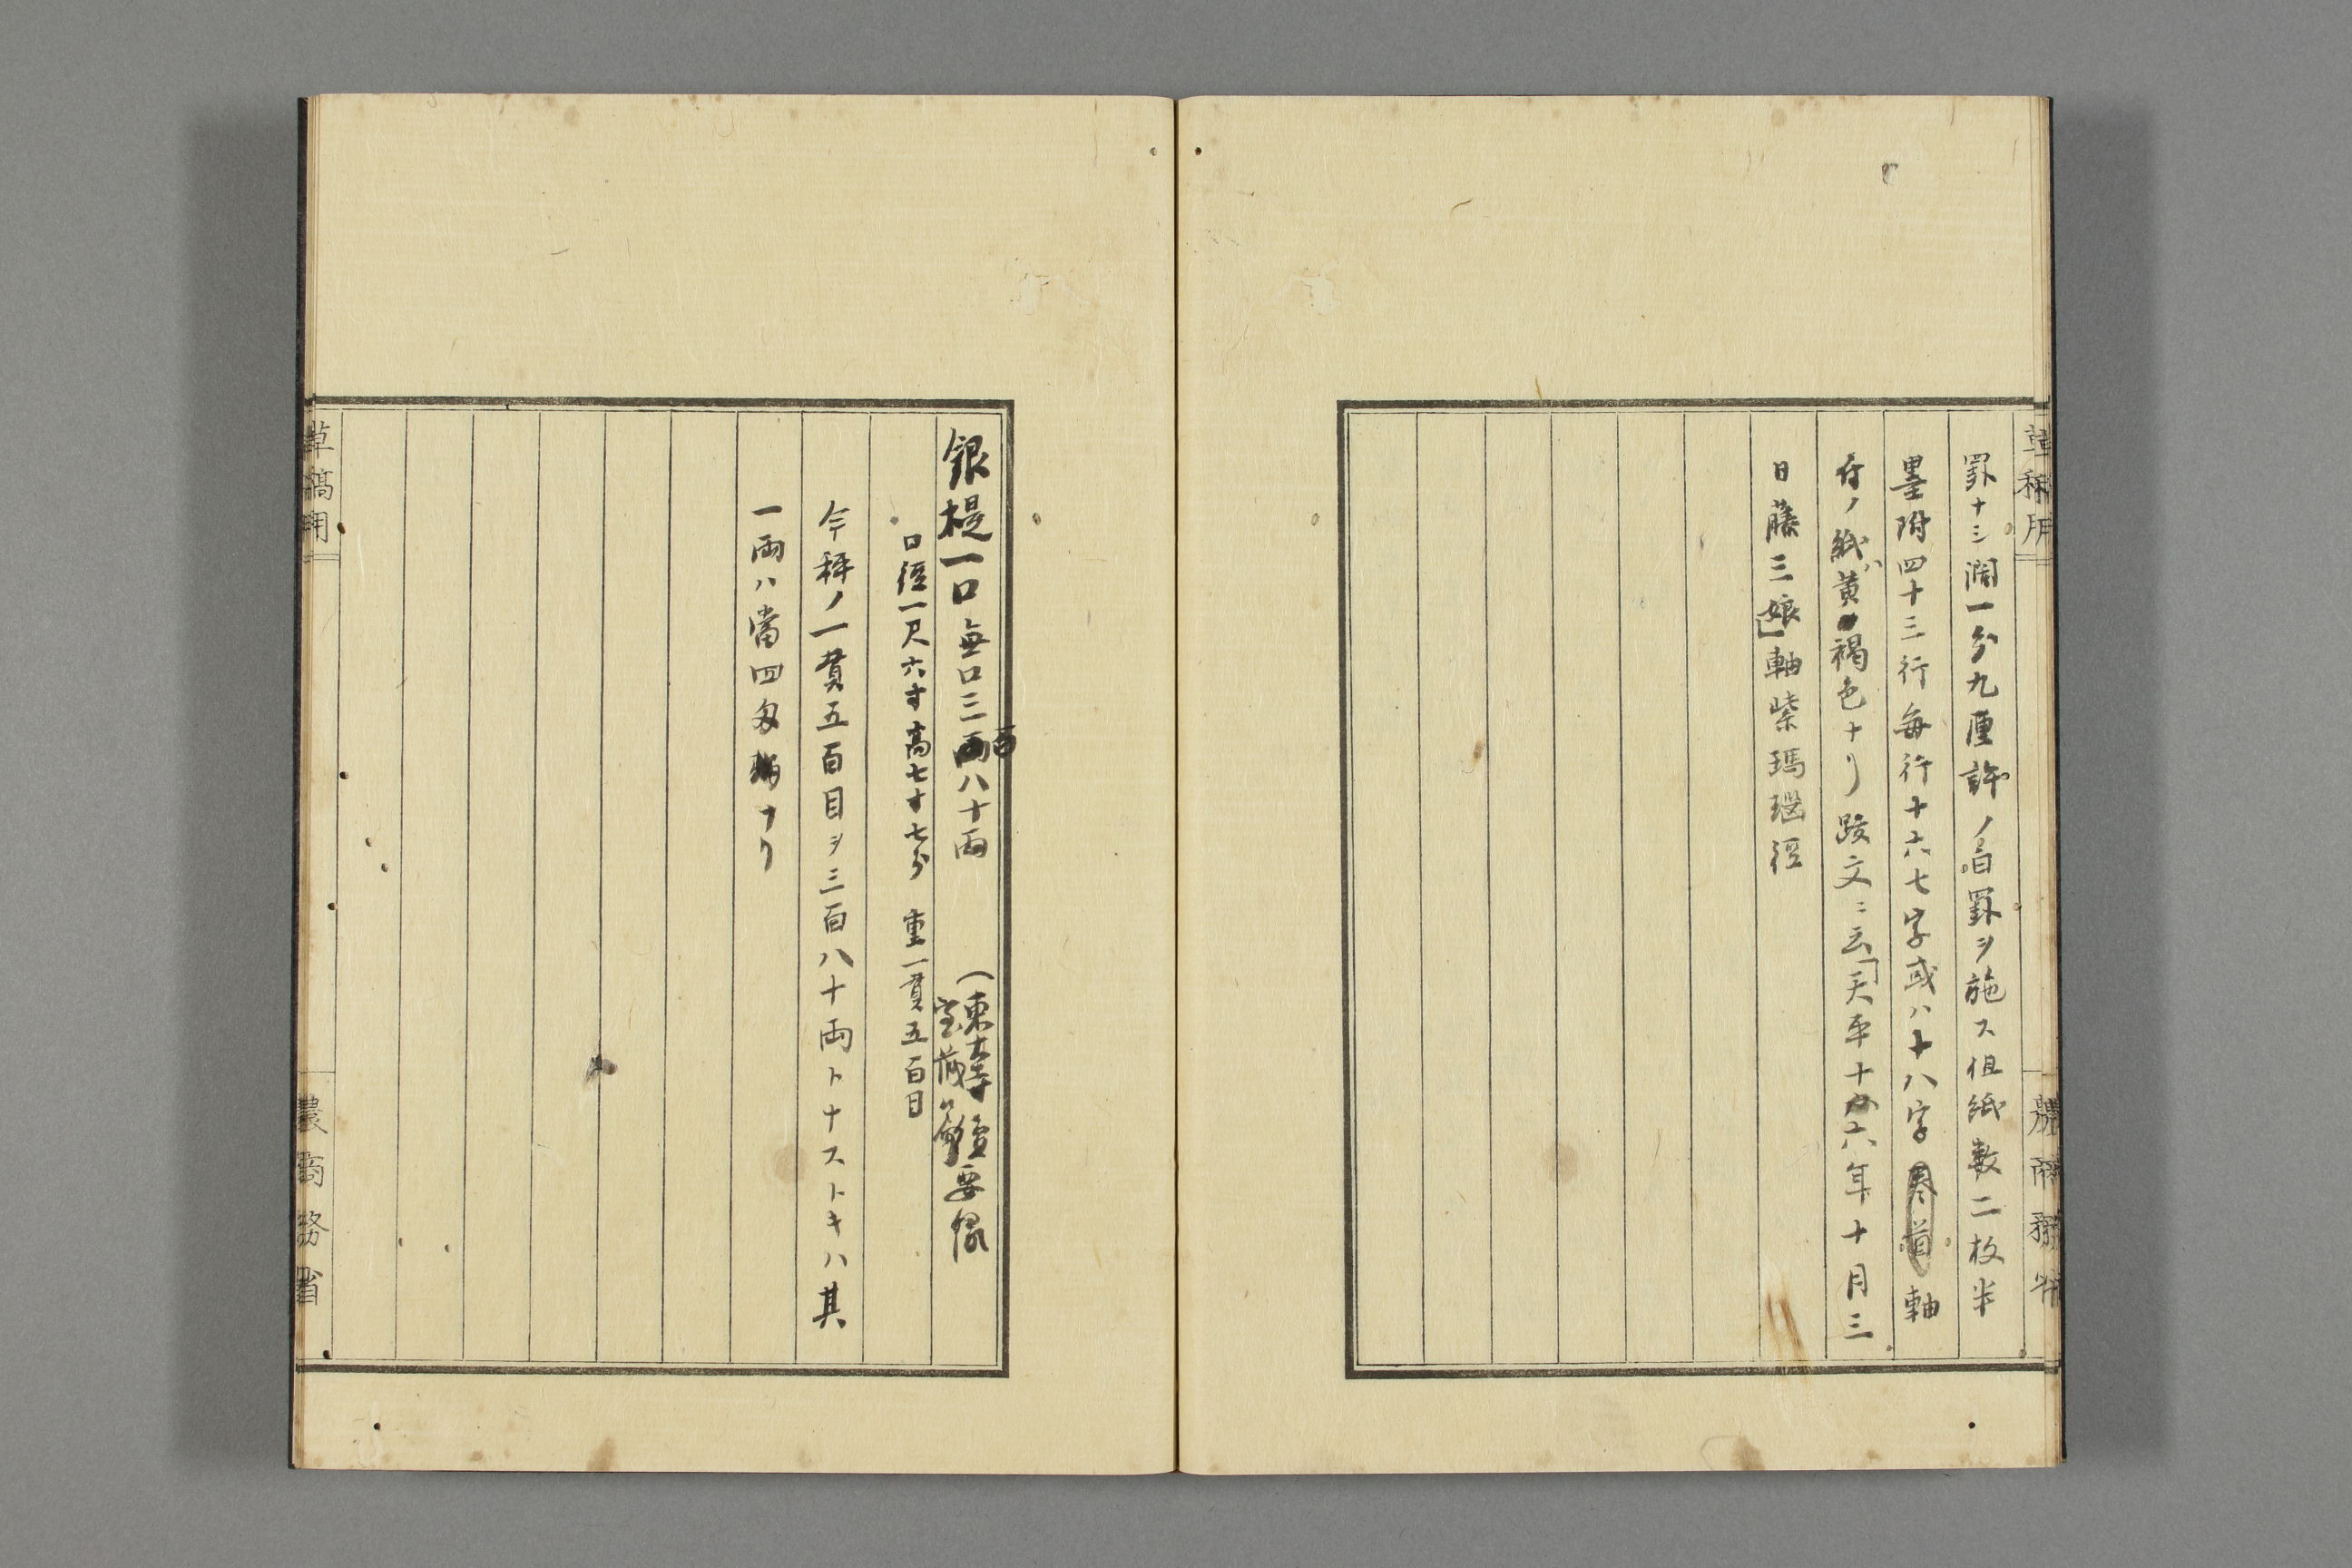 草稿用
農商務省
罫ナシ濶一分九厘許ノ白罫ヲ施ス但紙数二枚半
墨附四十三行毎行十六七字或ハ十八字軸
付ノ紙ハ黄褐色ナリ跋文ニ云「天平十六年十月三
日藤三娘」軸紫瑪瑙径
銀提一口無口三百八十両(東大寺
宝蔵
要録
口径一尺六寸高七寸七分 重一貫五百目
今秤ノ一貫五百目ヲ三百八十両トナストキハ其
一両ハ当四匁ナリ
草稿用
農商務省